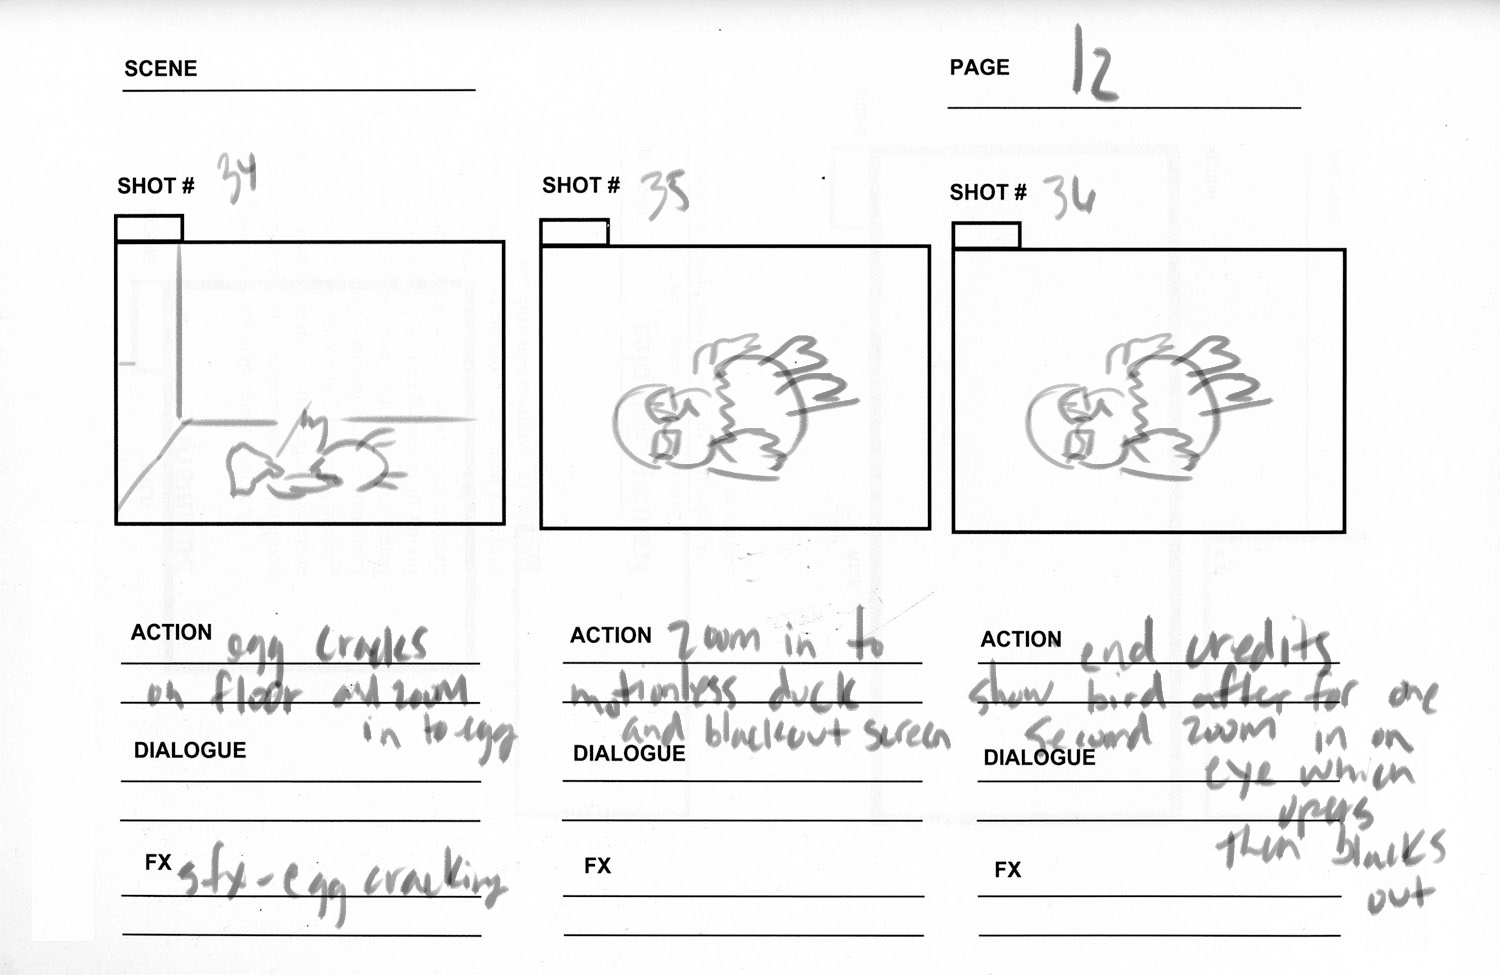 SCENE
PAGE 12
SHOT # 34
SHOT # 35
SHOT # 36
ACTION egg cracks
on floor and zoom
in to egg
DIALOGUE
FX sfx-egg cracking
ACTION zoom in to
motionless duck
and blackout screen
DIALOGUE
FX
ACTION end credits
show bird after for one
second zoom in on
DIALOGUE
eye which
opens
then blacks
out
FX